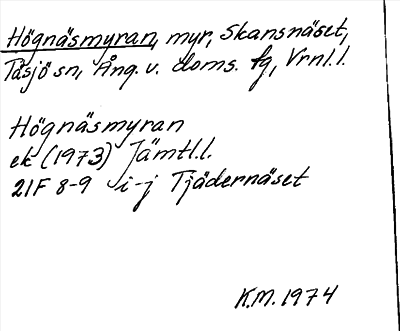 Högnäsmyran, myr, Skansnäset,
Tåsjö sn, Ång. v. doms. fg, Vrnl. l.
Högnäsmyran
ek (1973) Jämtl. l.
21F 8-9 i-j Tjädernäset
K.M. 1974